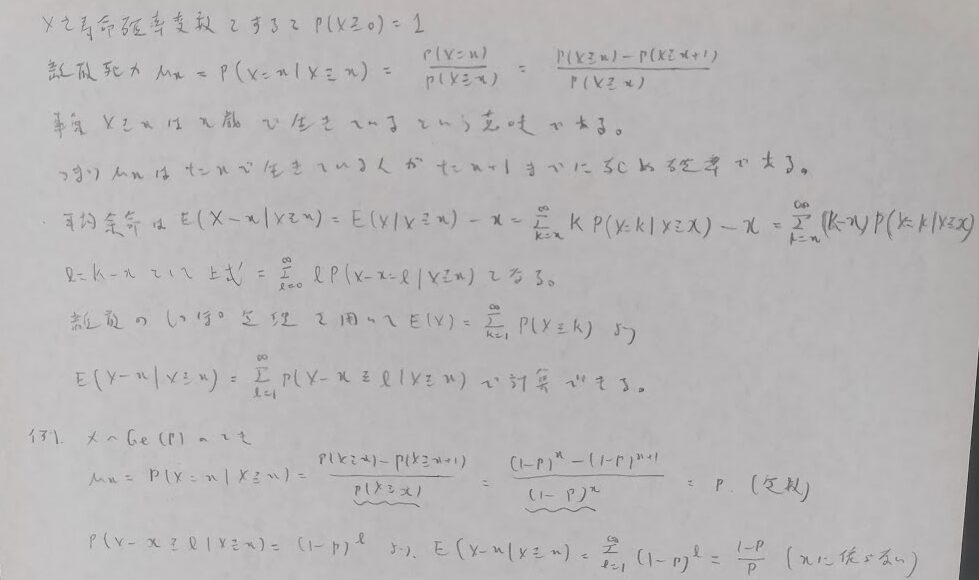 Xを寿命確率変数とすると P(X≧0) = 1
離散死力 μx = P(X=x | X≧x) = P(X=x)/P(X≧x) = (P(X≧x) - P(X≧x+1))/P(X≧x)
事象 X≧x は x歳で生きているという意味である。
つまり μx は t=x で生きている人が t=x+1 までに死ぬ確率である。
・平均余命は E(X-x | X≧x) = E(X | X≧x) - x = Σ_{k=x}^{∞} k P(X=k | X≧x) - x = Σ_{k=x}^{∞} (k-x) P(X=k | X≧x)
l = k-x として 上式 = Σ_{l=0}^{∞} l P(X-x=l | X≧x) となる。
離散のしっぽ定理を用いて E(X) = Σ_{k=1}^{∞} P(X≧k) より
E(X-x | X≧x) = Σ_{l=1}^{∞} P(X-x≧l | X≧x) で計算できる。
例1. X~Ge(P) のとき
μx = P(X=x | X≧x) = (P(X≧x) - P(X≧x+1))/P(X≧x) = ((1-P)^x - (1-P)^{x+1})/(1-P)^x = P. (定数)
P(X-x≧l | X≧x) = (1-P)^l より. E(X-x | X≧x) = Σ_{l=1}^{∞} (1-P)^l = (1-P)/P (xに依らない)